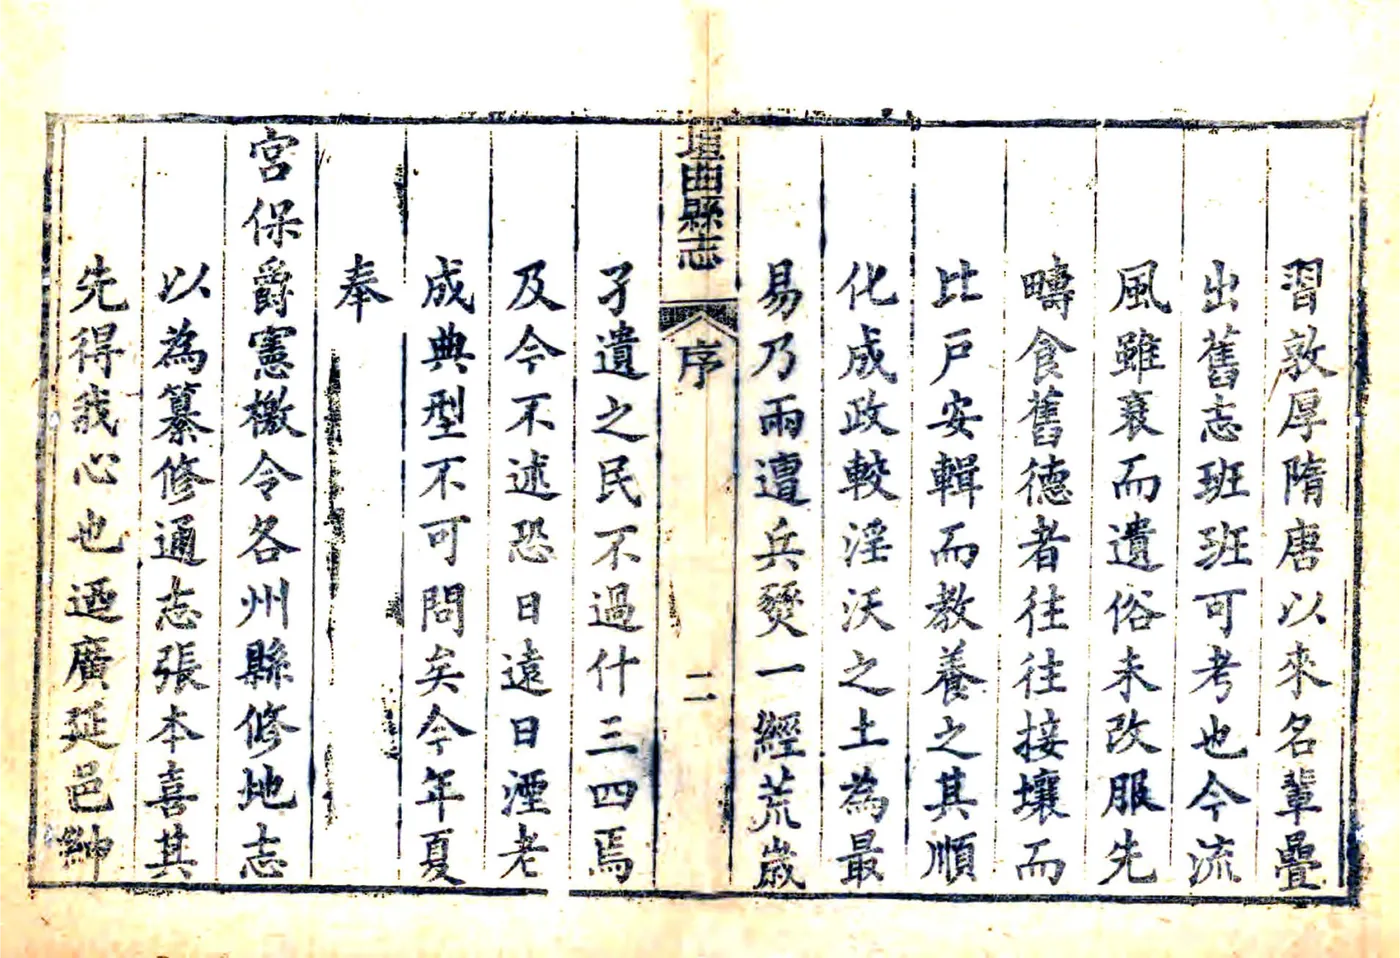 習敦厚隋唐以來名輩疊
出舊志班班可考也今流
風雖衰而遺俗未改服先
疇食舊德者往往接壤而
比戸安輯而教養之其順
化成政較淫沃之土為最
易乃兩遭兵燹一經荒歲
垣曲縣志
序
二
孑遺之民不過什三四焉
及今不述恐日遠日湮老
成典型不可問矣今年夏
奉
宮保爵憲檄令各州縣修地志
以為纂修通志張本喜其
先得我心也迺廣延邑紳